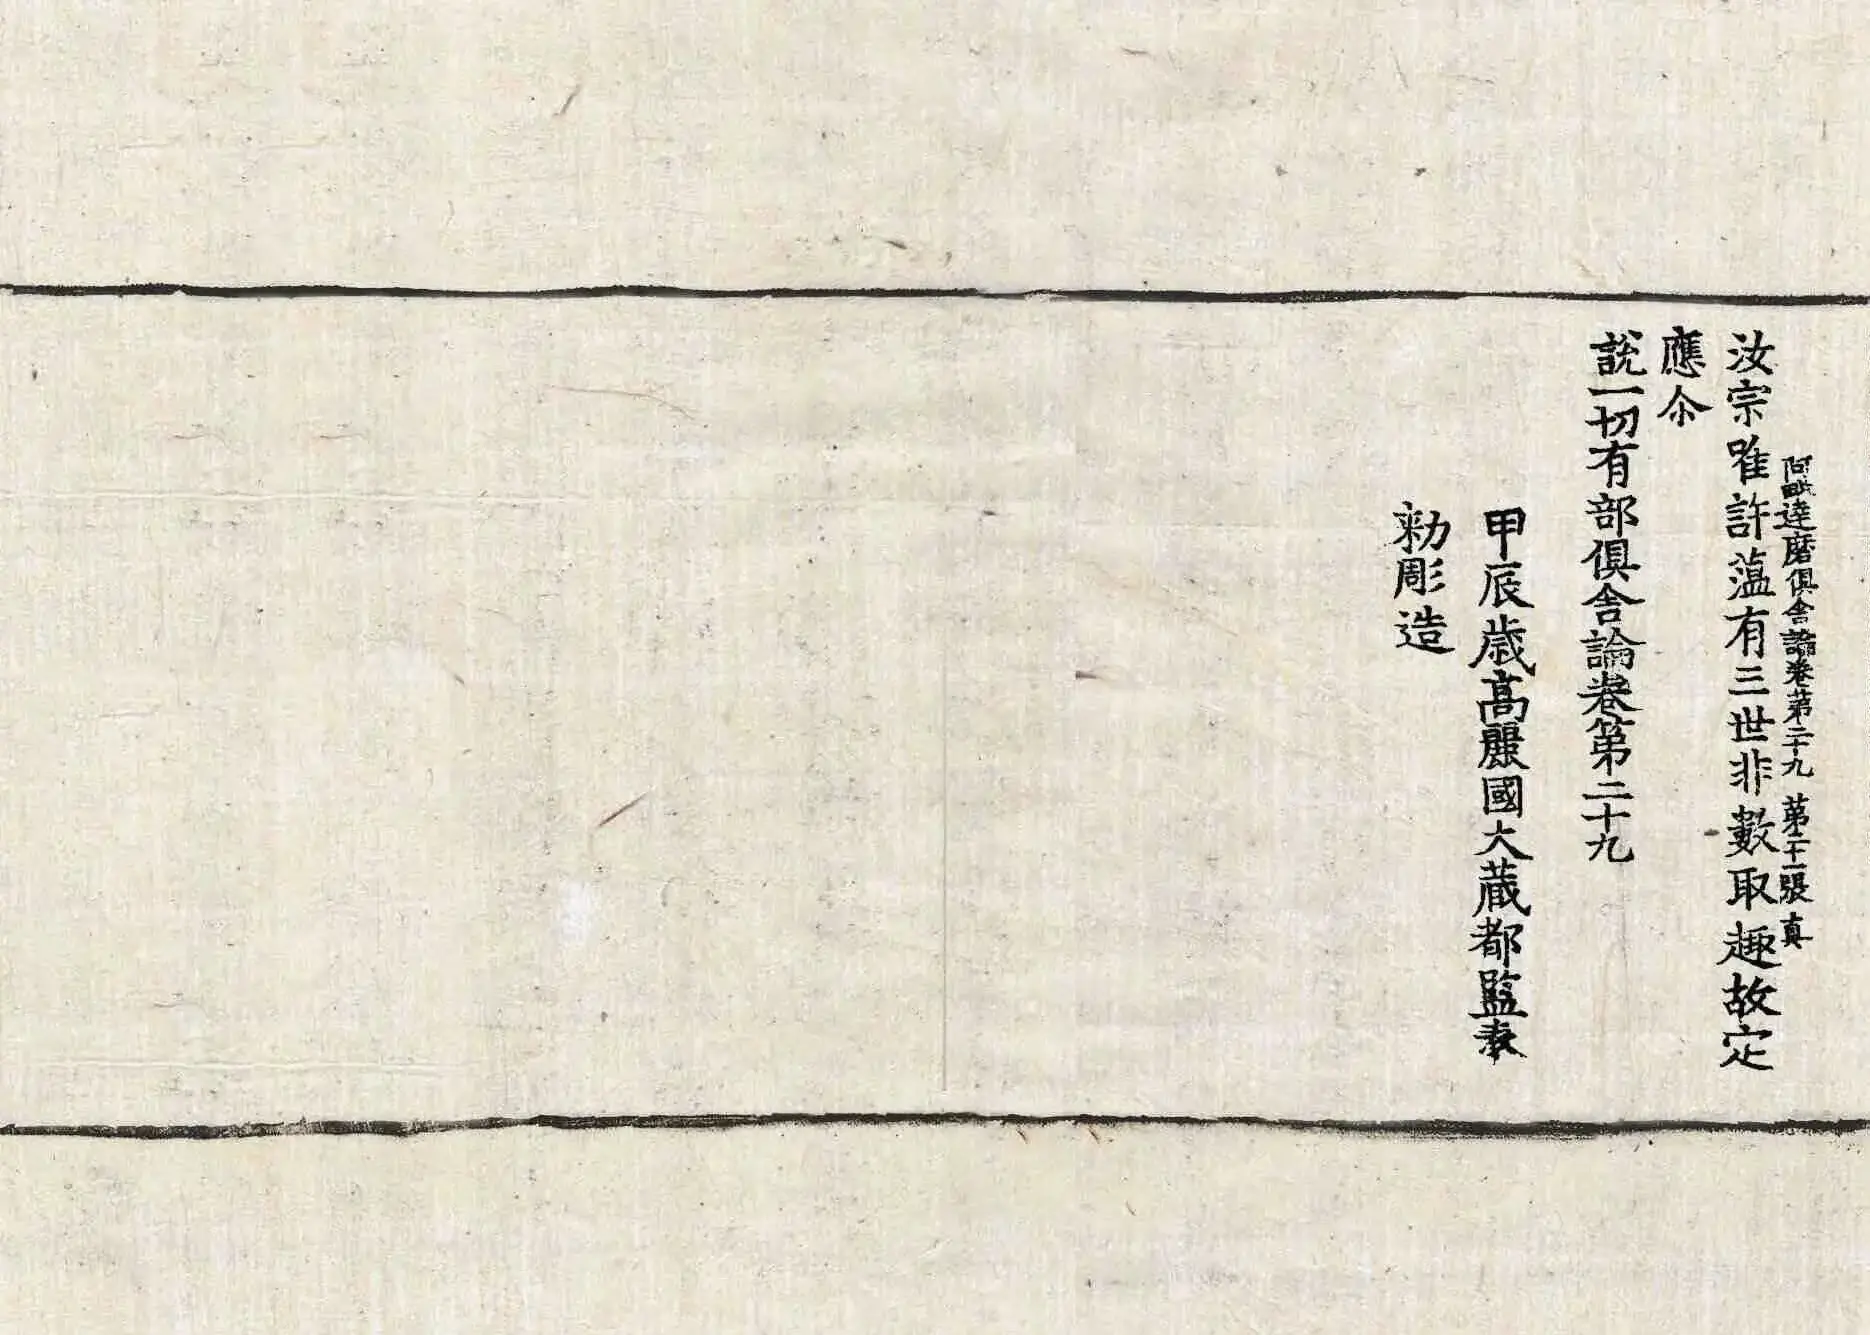 阿毗達磨俱舍論卷苐二十九 苐二十一張 真
汝宗唯許薀有三世非數取趣故定
應尒
說一切有部俱舍論卷第二十九
甲辰歲高麗國大藏都監奉
勑彫造